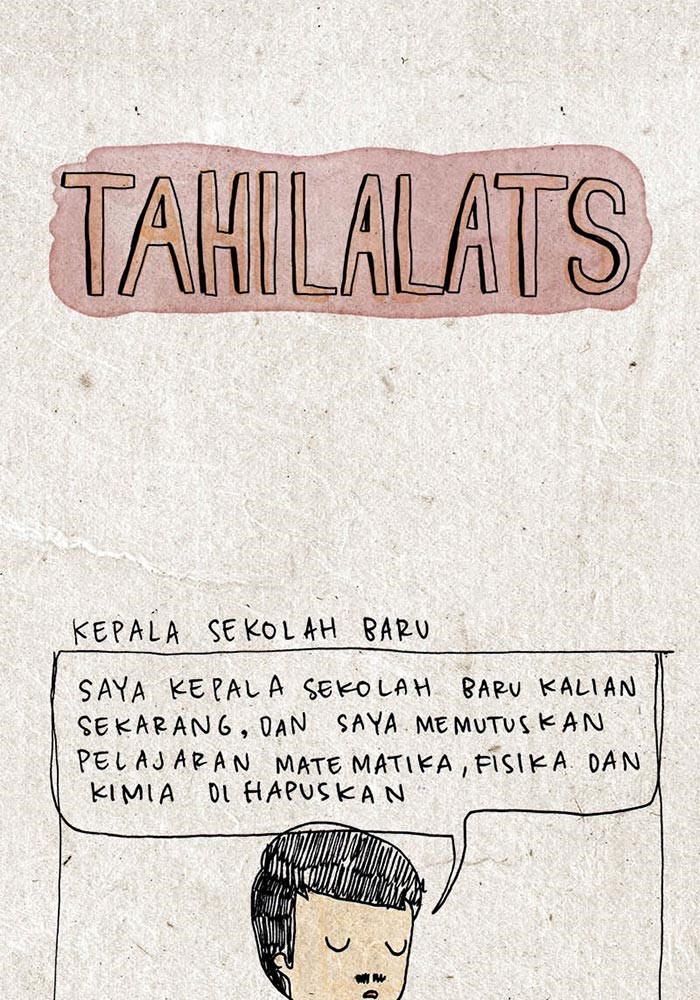 TAHILALATS
KEPALA SEKOLAH BARU
SAYA KEPALA SEKOLAH BARU KALIAN
SEKARANG, DAN SAYA MEMUTUSKAN
PELAJARAN MATEMATIKA, FISIKA DAN
KIMIA DI HAPUSKAN